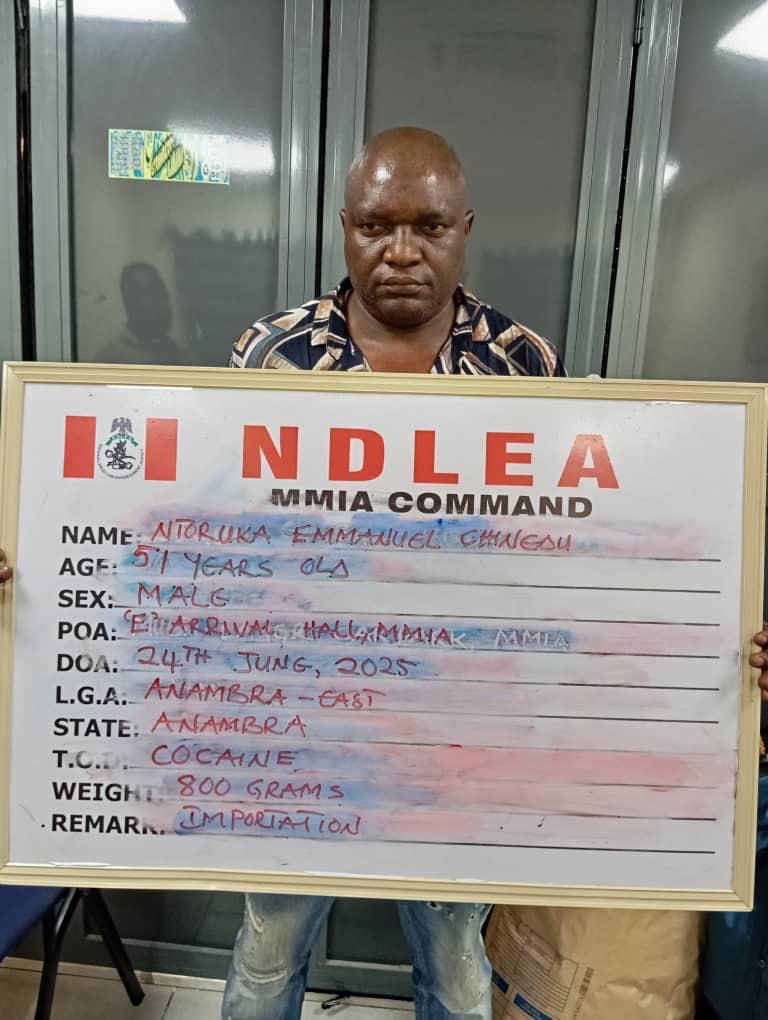 NDLEA
MMIA COMMAND
NAME: NTORUKA EMMANUEL CHINEDU
AGE: 51 YEARS OLD
SEX: MALE
POA: 'E' ARRIVAL HALL, MMIA
DOA: 24TH JUNE, 2025
L.G.A: ANAMBRA - EAST
STATE: ANAMBRA
T.O.D: COCAINE
WEIGHT: 800 GRAMS
REMARK: IMPORTATION